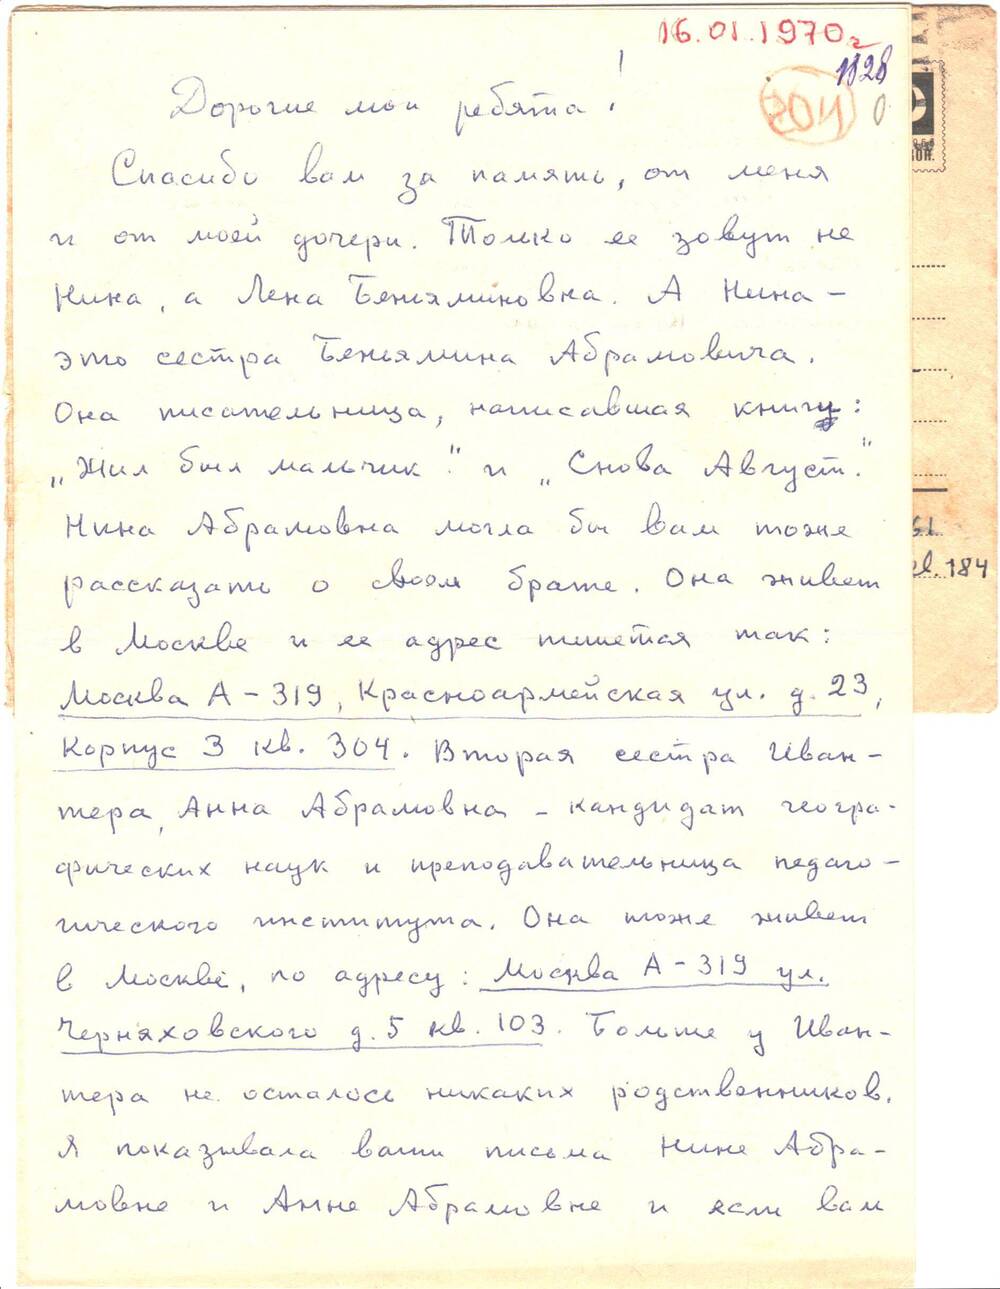 16.01.1970г
1128
2011
0
Дорогие мои ребята!
Спасибо вам за память, от меня
и от моей дочери. Только ее зовут не
Нина, а Лена Беньяминовна. А Нина –
это сестра Беньямина Абрамовича.
Она писательница, написавшая книгу:
„Жил был мальчик" и „Снова Август."
Нина Абрамовна могла бы вам тоже
рассказать о своем брате. Она живет
в Москве и ее адрес пишется так:
Москва А-319, Красноармейская ул. д. 23,
Корпус 3 кв. 304. Вторая сестра Иван-
тера, Анна Абрамовна – кандидат геогра-
фических наук и преподавательница педаго-
гического института. Она тоже живет
в Москве, по адресу: Москва А-319 ул.
Черняховского д. 5 кв. 103. Больше у Иван-
тера не осталось никаких родственников.
Я показывала ваши письма Нине Абра-
мовне и Анне Абрамовне и если вам
184